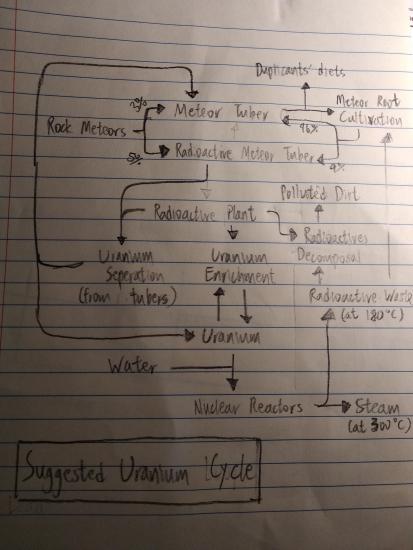 Duplicants' diets
Meteor Tuber
Meteor Root
Cultivation
Rock Meteors
96%
5%
Radioactive Meteor Tuber
4%
Polluted Dirt
Radioactive Plant
Radioactives
Decomposal
Uranium
Seperation
(from tubers)
Uranium
Enrichment
Radioactive Waste
(at 180°C)
Uranium
Water
Nuclear Reactors
Steam
(at 300°C)
Suggested Uranium Cycle